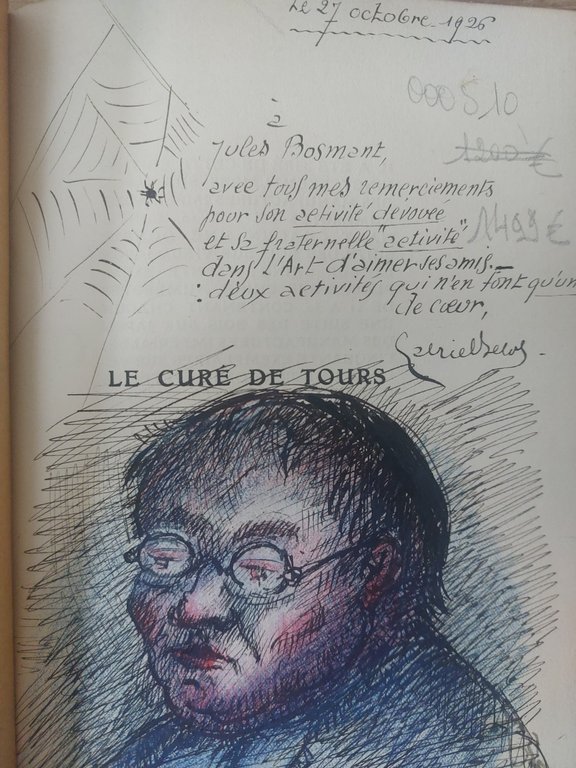 Le 27 octobre 1926
000 S 10
à
Jules Bosmant,
1200 €
avec tous mes remerciements
pour son activité dévouée
1499 €
et sa fraternelle "activité"
dans l'Art d'aimer ses amis.
: deux activités qui n'en font qu'un
de cœur,
LE CURÉ DE TOURS